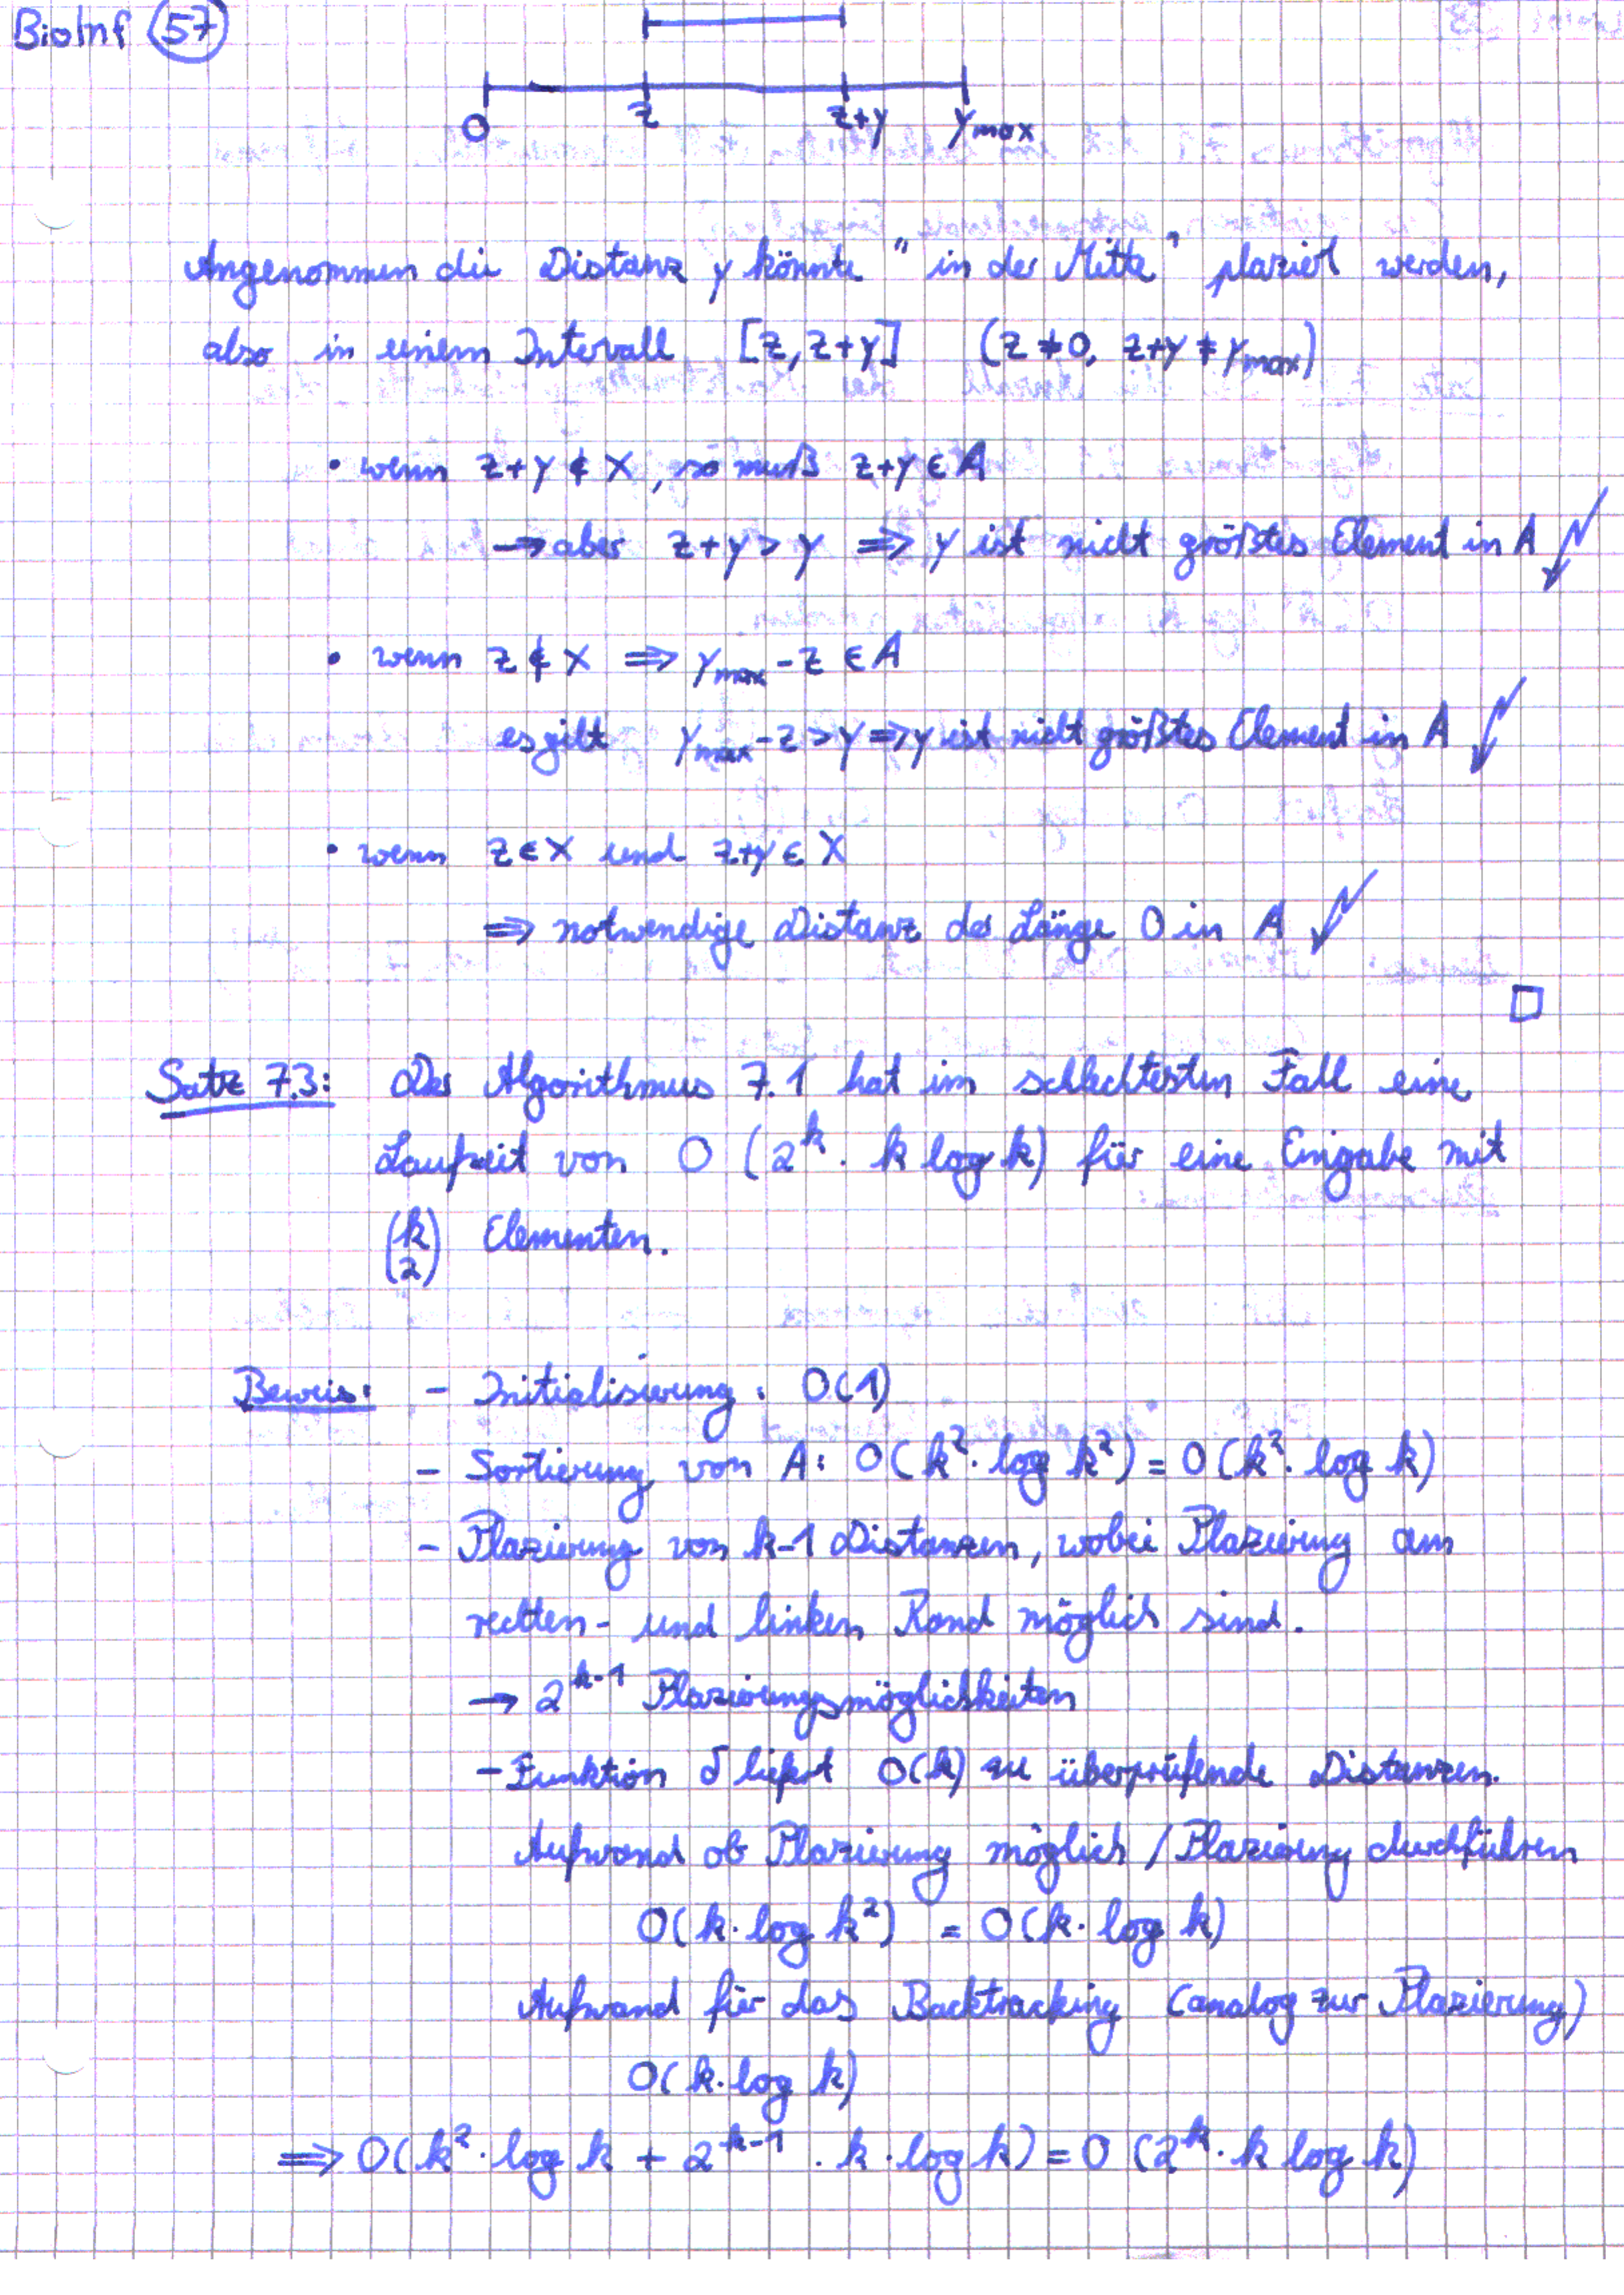 BioInf 57
0 z z+y ymax
Angenommen die Distanz y könnte "in der Mitte" plaziert werden,
also in einem Intervall [z, z+y] (z ≠ 0, z+y ≠ ymax)
• wenn z+y ∉ X, so muß z+y ∈ A
→ aber z+y > y ⇒ y ist nicht größtes Element in A ↯
• wenn z ∉ X ⇒ ymax - z ∈ A
es gilt ymax - z > y ⇒ y ist nicht größtes Element in A ↯
• wenn z ∈ X und z+y ∈ X
⇒ notwendige Distanz der Länge 0 in A ↯
□
Satz 7.3: Der Algorithmus 7.1 hat im schlechtesten Fall eine
Laufzeit von O(2^k · k log k) für eine Eingabe mit
(k 2) Elementen.
Beweis: - Initialisierung: O(1)
- Sortierung von A: O(k² · log k²) = O(k² · log k)
- Plazierung von k-1 Distanzen, wobei Plazierung am
rechten- und linken Rand möglich sind.
→ 2^k-1 Plazierungsmöglichkeiten
- Funktion δ liefert O(k) zu überprüfende Distanzen.
Aufwand ob Plazierung möglich / Plazierung durchführen
O(k · log k²) = O(k · log k)
Aufwand für das Backtracking (analog zur Plazierung)
O(k · log k)
⇒ O(k² · log k + 2^k-1 · k · log k) = O(2^k · k log k)